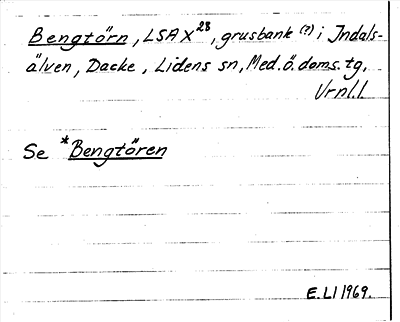 Bengtörn, LSA X²⁸, grusbank (?) i Indals-
älven, Dacke, Lidens sn, Med.ö.doms.tg,
Vrnl.l.
Se *Bengtören
E. LI 1969.